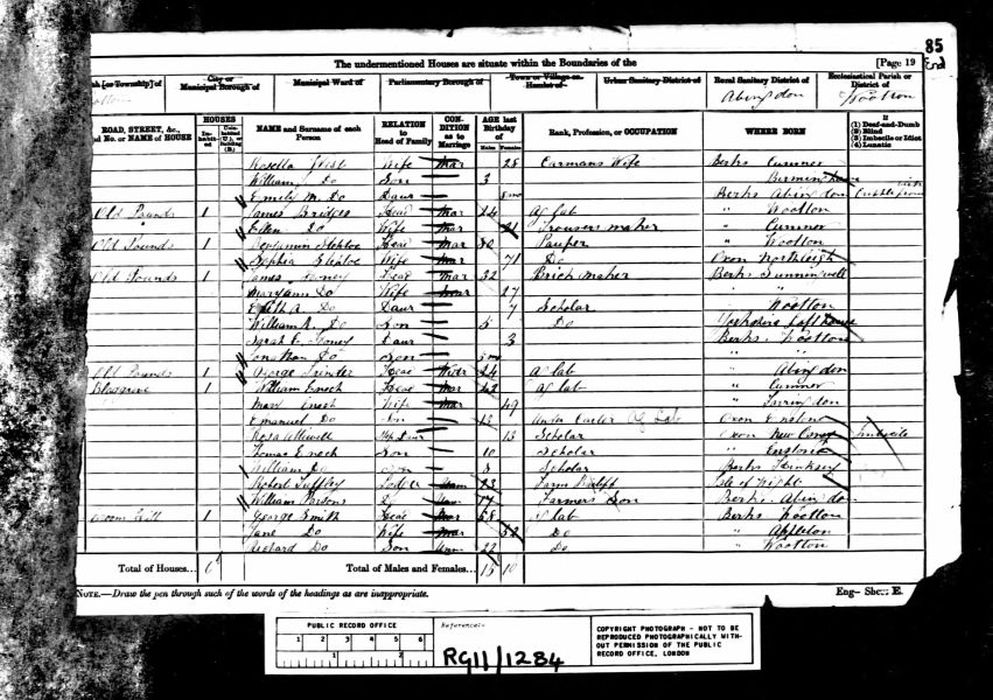 85
End
The undermentioned Houses are situate within the Boundaries of the [Page 19
[or Township] of
City or Municipal Borough of
Municipal Ward of
Parliamentary Borough of
Town or Village or Hamlet of
Urban Sanitary District of
Rural Sanitary District of
Abingdon
Ecclesiastical Parish or District of
Wootton
ROAD, STREET, &c., No. or NAME of HOUSE
HOUSES
In-habit-ed
Unin-habited (U.), or Building (B.)
NAME and Surname of each Person
RELATION to Head of Family
CON-DITION as to Marriage
AGE last Birthday of
Males Females
Rank, Profession, or OCCUPATION
WHERE BORN
If
(1) Deaf-and-Dumb
(2) Blind
(3) Imbecile or Idiot
(4) Lunatic
Rosella Wife Mar 28 Carmans Wife Berks Cumner
William Do Son 3 Birmingham
Emily M. Do Daur 8 mo Berks Abingdon
Old Pounds 1 James Bridges Head Mar 24 Ag Lab " Wootton
Ellen Do Wife Mar 21 Trousers maker " Cumner
Old Pounds 1 Benjamin Head Mar 80 Pauper " Wootton
Sophia Wife Mar 71 Do Oxon Northleigh
Old Pounds 1 James Head Mar 32 Brick maker Berks Sunningwell
Maryann Do Wife Mar 27 " "
Edith A. Do Daur 7 Scholar Wootton
William Do Son 5 Do Yorkshire
Sarah E. Daur 3 Berks Wootton
Jonathan Do Son 5 mo " "
Old Pounds 1 George Trinder Head Widr 24 Ag lab " Abingdon
Blagrove 1 William Enoch Head Mar 42 Ag lab " Cumner
Mary Enoch Wife Mar 49 " Farringdon
Emanuel Do Son 13 Under Carter Ag Lab Oxon Enstone
Rosa Step Daur 13 Scholar Oxon New Imbecile
Thomas Enoch Son 10 Scholar " Enstone
William Do Son 8 Scholar Berks Hinksey
Robert Tuffley Lodger Unm 23 Farm Bailiff Isle of Wight
William Parsons Do Unm 17 Farmers Son Berks Abingdon
1 George Smith Head Mar 58 Ag lab Berks Wootton
Jane Do Wife Mar 52 Do " Appleton
Richard Do Son Unm 22 Do " Wootton
Total of Houses... 6
Total of Males and Females... 15 10
NOTE.—Draw the pen through such of the words of the headings as are inappropriate.
Eng—Sheet E.
PUBLIC RECORD OFFICE
1 2 3 4 5 6
1 2
Reference:-
RG11/1284
COPYRIGHT PHOTOGRAPH - NOT TO BE
REPRODUCED PHOTOGRAPHICALLY WITH-
OUT PERMISSION OF THE PUBLIC
RECORD OFFICE, LONDON